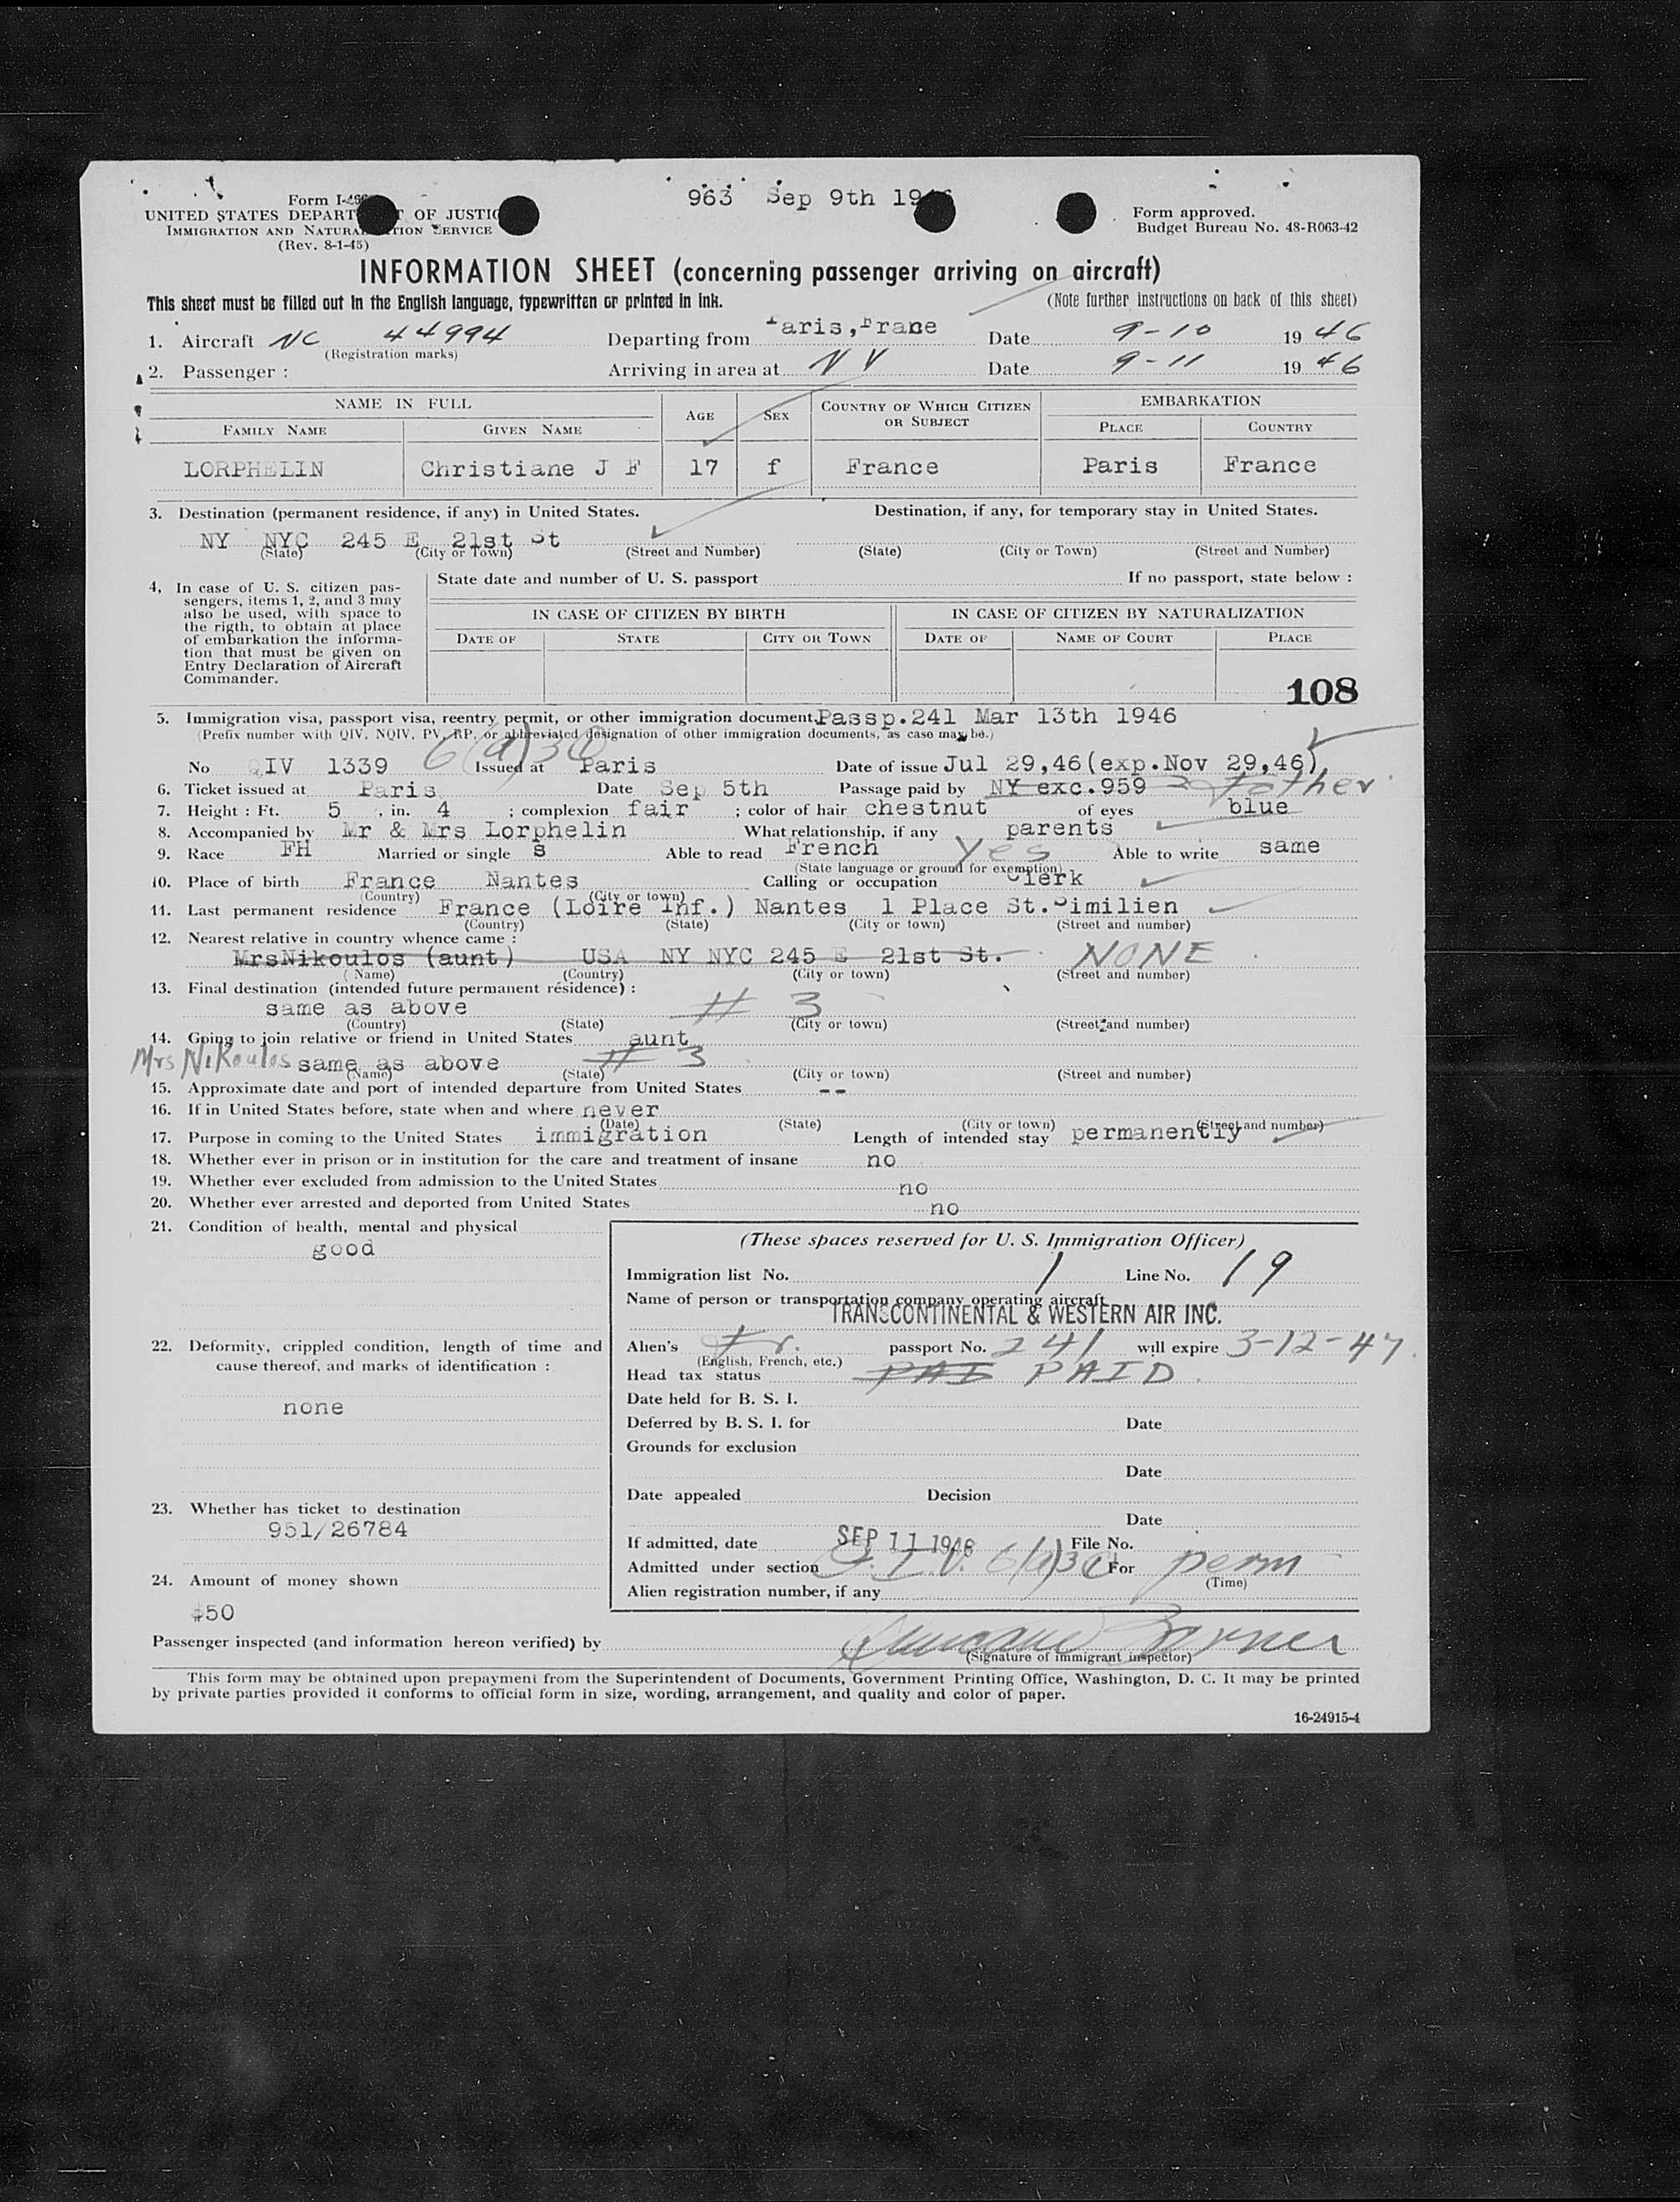 963 Sep 9th 19
Form I-
UNITED STATES DEPART OF JUSTIC
IMMIGRATION AND NATURAL TION SERVICE
(Rev. 8-1-45)
Form approved.
Budget Bureau No. 48-R063-42
INFORMATION SHEET (concerning passenger arriving on aircraft)
This sheet must be filled out in the English language, typewritten or printed in ink. (Note further instructions on back of this sheet)
1. Aircraft NC 44994 Departing from Paris,Frane Date 9-10 1946
(Registration marks)
2. Passenger : Arriving in area at N Y Date 9-11 1946
NAME IN FULL AGE SEX COUNTRY OF WHICH CITIZEN OR SUBJECT EMBARKATION
FAMILY NAME GIVEN NAME PLACE COUNTRY
LORPHELIN Christiane J F 17 f France Paris France
3. Destination (permanent residence, if any) in United States. Destination, if any, for temporary stay in United States.
NY NYC 245 E 21st St
(State) (City or Town) (Street and Number) (State) (City or Town) (Street and Number)
4. In case of U. S. citizen pas-
sengers, items 1, 2, and 3 may
also be used, with space to
the rigth, to obtain at place
of embarkation the informa-
tion that must be given on
Entry Declaration of Aircraft
Commander.
State date and number of U. S. passport If no passport, state below :
IN CASE OF CITIZEN BY BIRTH IN CASE OF CITIZEN BY NATURALIZATION
DATE OF STATE CITY OR TOWN DATE OF NAME OF COURT PLACE
108
5. Immigration visa, passport visa, reentry permit, or other immigration document. Passp.241 Mar 13th 1946
(Prefix number with QIV, NQIV, PV, RP, or abbreviated designation of other immigration documents, as case may be.)
No QIV 1339 6(a)3 Issued at Paris Date of issue Jul 29,46(exp.Nov 29,46)
6. Ticket issued at Paris Date Sep 5th Passage paid by NY exc.959 father
7. Height : Ft. 5 , in. 4 ; complexion fair ; color of hair chestnut of eyes blue
8. Accompanied by Mr & Mrs Lorphelin What relationship, if any parents
9. Race FH Married or single s Able to read French Yes Able to write same
(State language or ground for exemption)
10. Place of birth France Nantes Calling or occupation Clerk
(Country) (City or town)
11. Last permanent residence France (Loire Inf.) Nantes 1 Place St.Similien
(Country) (State) (City or town) (Street and number)
12. Nearest relative in country whence came :
MrsNikoulos (aunt) USA NY NYC 245 E 21st St. NONE
(Name) (Country) (City or town) (Street and number)
13. Final destination (intended future permanent résidence) :
same as above # 3
(Country) (State) (City or town) (Street and number)
14. Going to join relative or friend in United States aunt
Mrs Nikoulos same as above # 3
(Name) (State) (City or town) (Street and number)
15. Approximate date and port of intended departure from United States --
16. If in United States before, state when and where never
(Date) (State) (City or town) (Street and number)
17. Purpose in coming to the United States immigration Length of intended stay permanently
18. Whether ever in prison or in institution for the care and treatment of insane no
19. Whether ever excluded from admission to the United States no
20. Whether ever arrested and deported from United States no
21. Condition of health, mental and physical
good
22. Deformity, crippled condition, length of time and
cause thereof, and marks of identification :
none
23. Whether has ticket to destination
951/26784
24. Amount of money shown
$50
(These spaces reserved for U. S. Immigration Officer)
Immigration list No. 1 Line No. 19
Name of person or transportation company operating aircraft
TRANSCONTINENTAL & WESTERN AIR INC.
Alien's Fr. passport No. 241 will expire 3-12-47.
(English, French, etc.)
Head tax status PAI PAID
Date held for B. S. I.
Deferred by B. S. I. for Date
Grounds for exclusion
Date
Date appealed Decision
Date
If admitted, date SEP 11 1946 File No.
Admitted under section Q.I.V. 6(a)3 For perm
(Time)
Alien registration number, if any
Passenger inspected (and information hereon verified) by
(Signature of immigrant inspector)
This form may be obtained upon prepayment from the Superintendent of Documents, Government Printing Office, Washington, D. C. It may be printed
by private parties provided it conforms to official form in size, wording, arrangement, and quality and color of paper.
16-24915-4